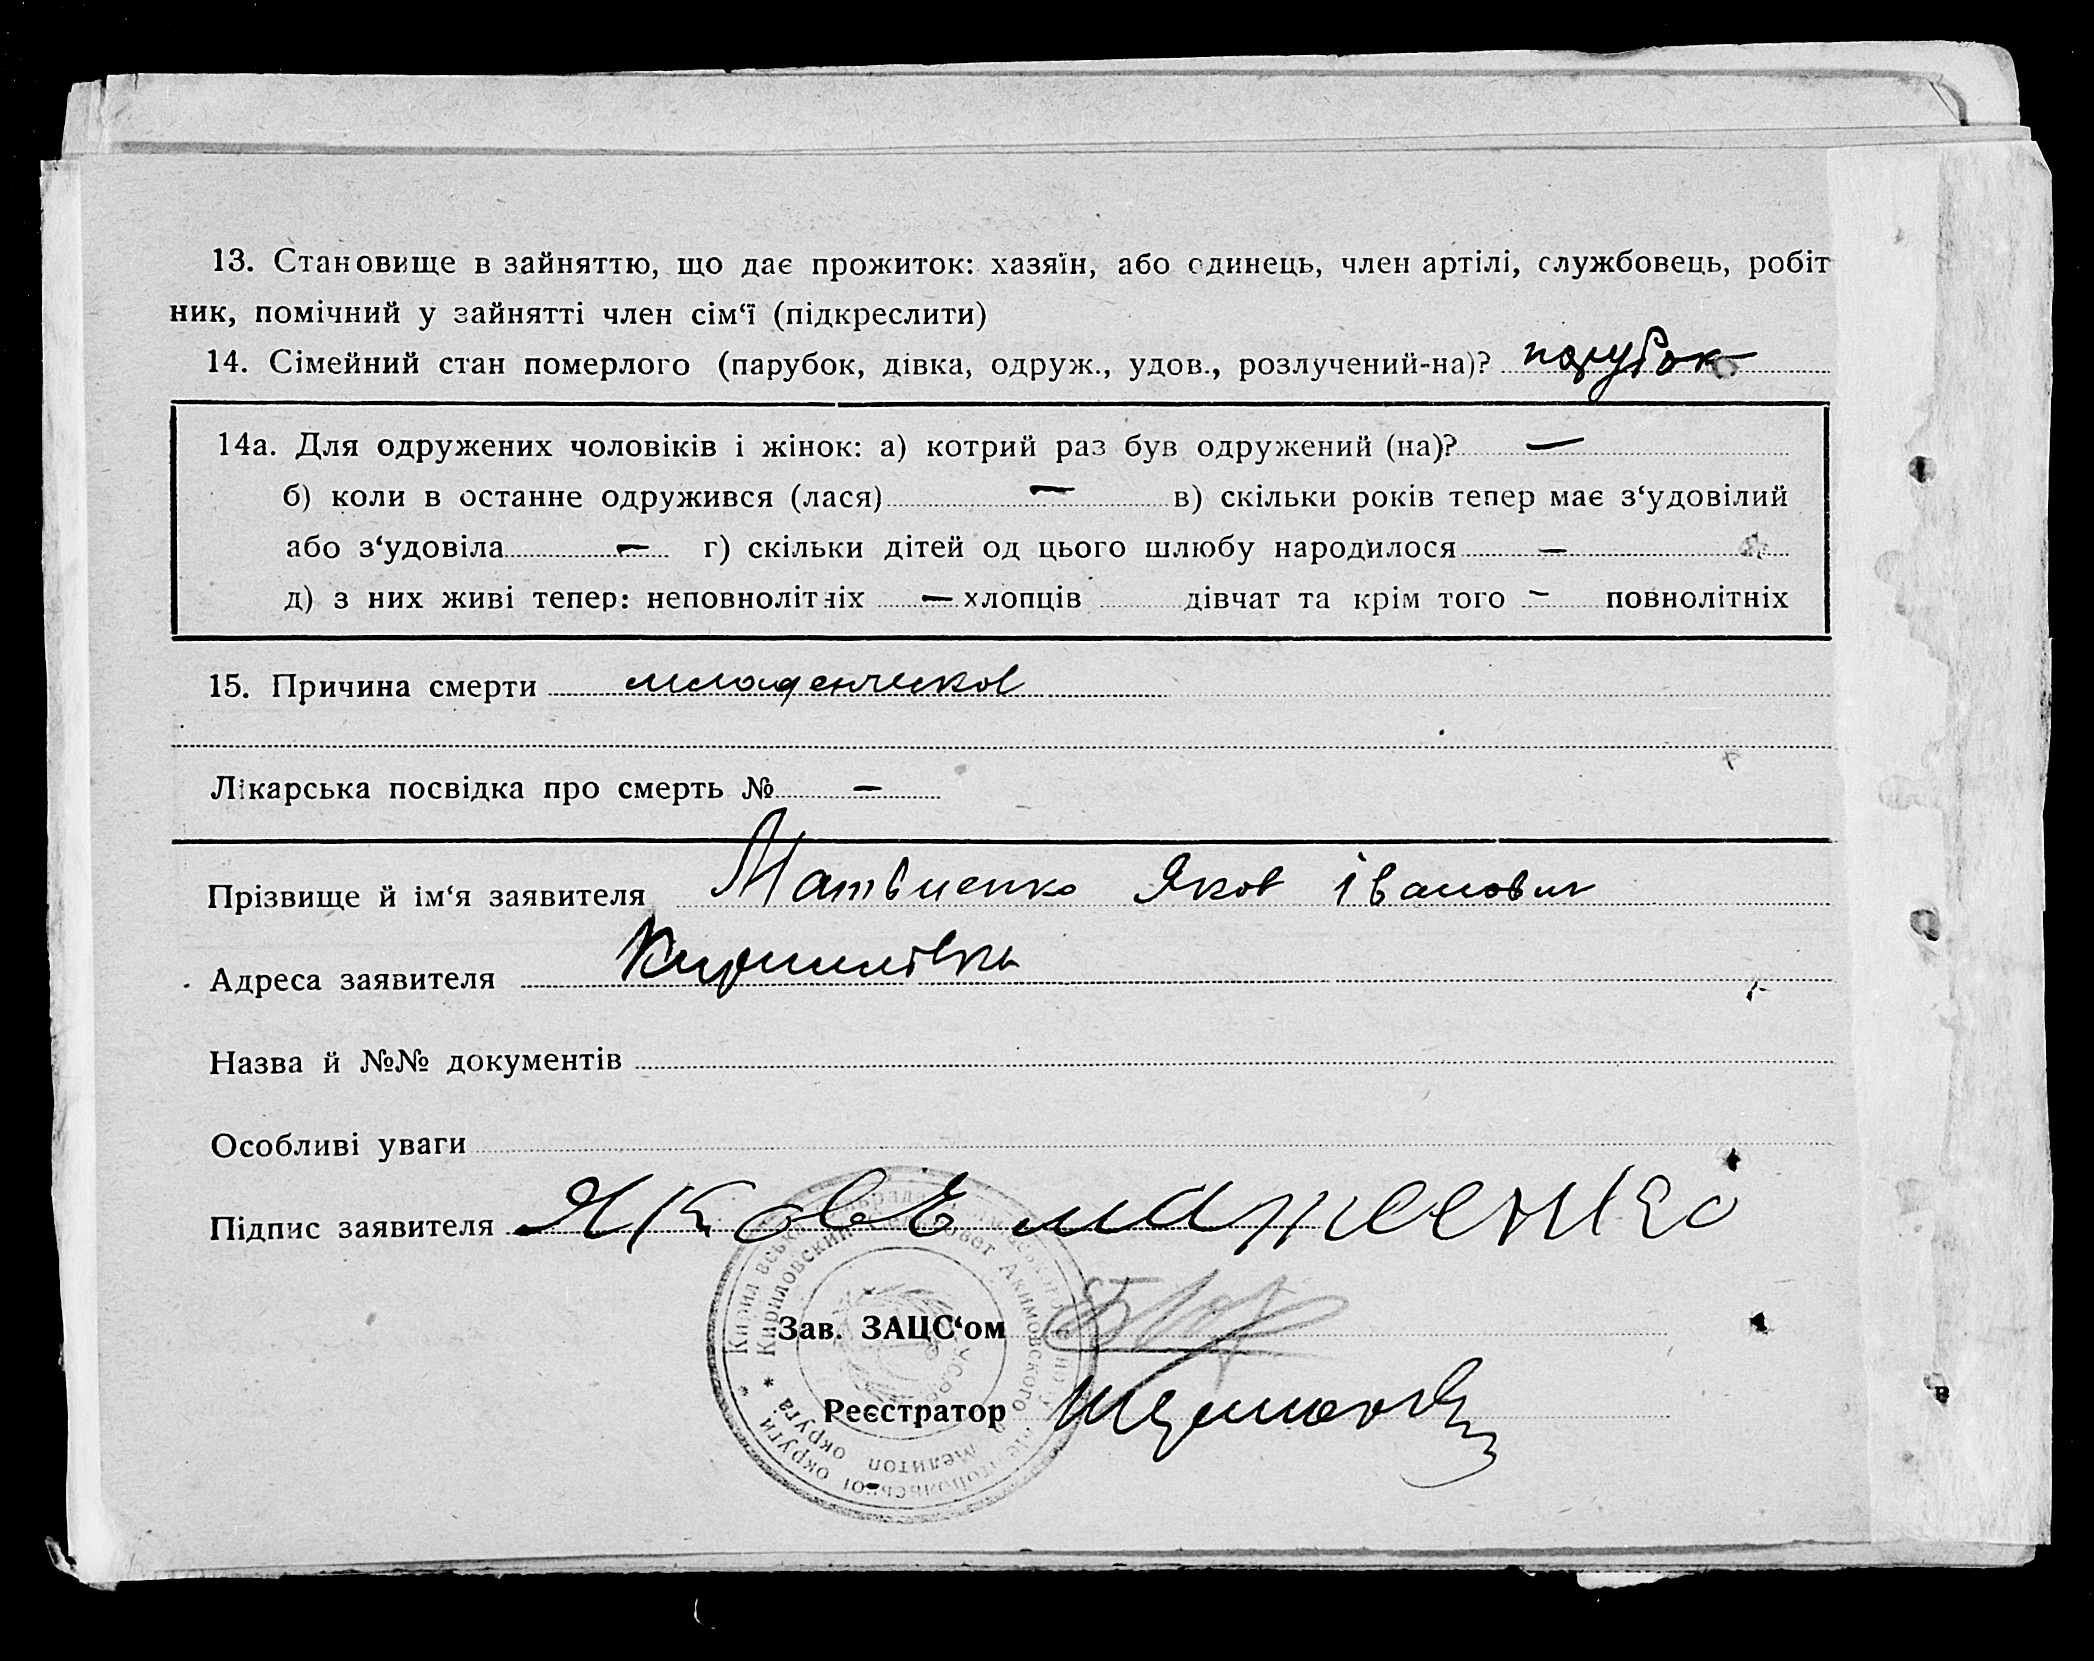 13. Становище в зайняттю, що дає прожиток: хазяїн, або одинець, член артілі, службовець, робіт
ник, помічний у зайнятті член сім‘ї (підкреслити)
14. Сімейний стан померлого (парубок, дівка, одруж., удов., розлучений-на)? парубок
14а. Для одружених чоловіків і жінок: а) котрий раз був одружений (на)? —
б) коли в останне одружився (лася) — в) скільки років тепер має з‘удовілий
або з‘удовіла — г) скільки дітей од цього шлюбу народилося —
д) з них живі тепер: неповнолітніх — хлопців дівчат та крім того — повнолітніх
15. Причина смерти младенческов
Лікарська посвідка про смерть № —
Прізвище й ім‘я заявителя Матвиенко Яков Іванович
Адреса заявителя Кирилівка
Назва й №№ документів
Особливі уваги
Підпис заявителя Яковъ
Зав. ЗАЦС‘ом
Реєстратор
Кирилівська округи *
Кириловский Совет Акимовского Мелитоп округа *